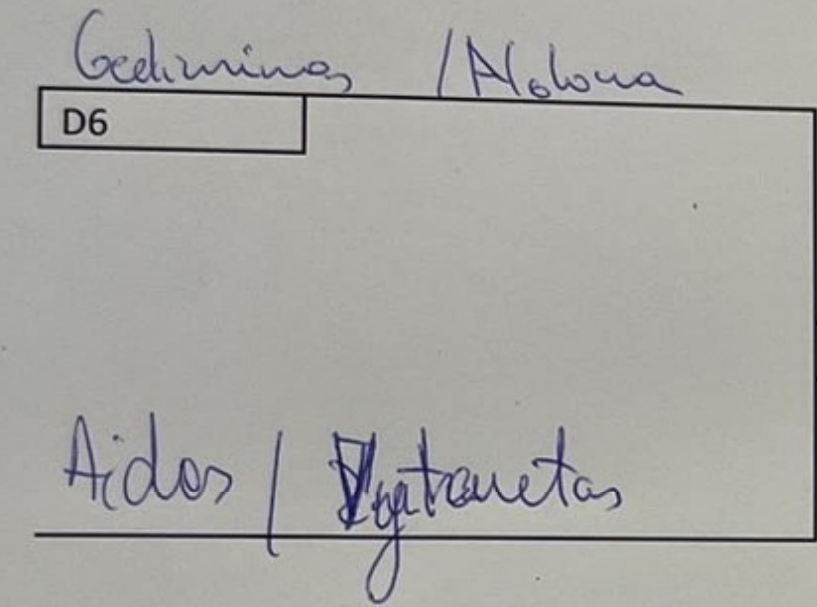 Gediminas / Aldona
D6
Aidas / Vytautas